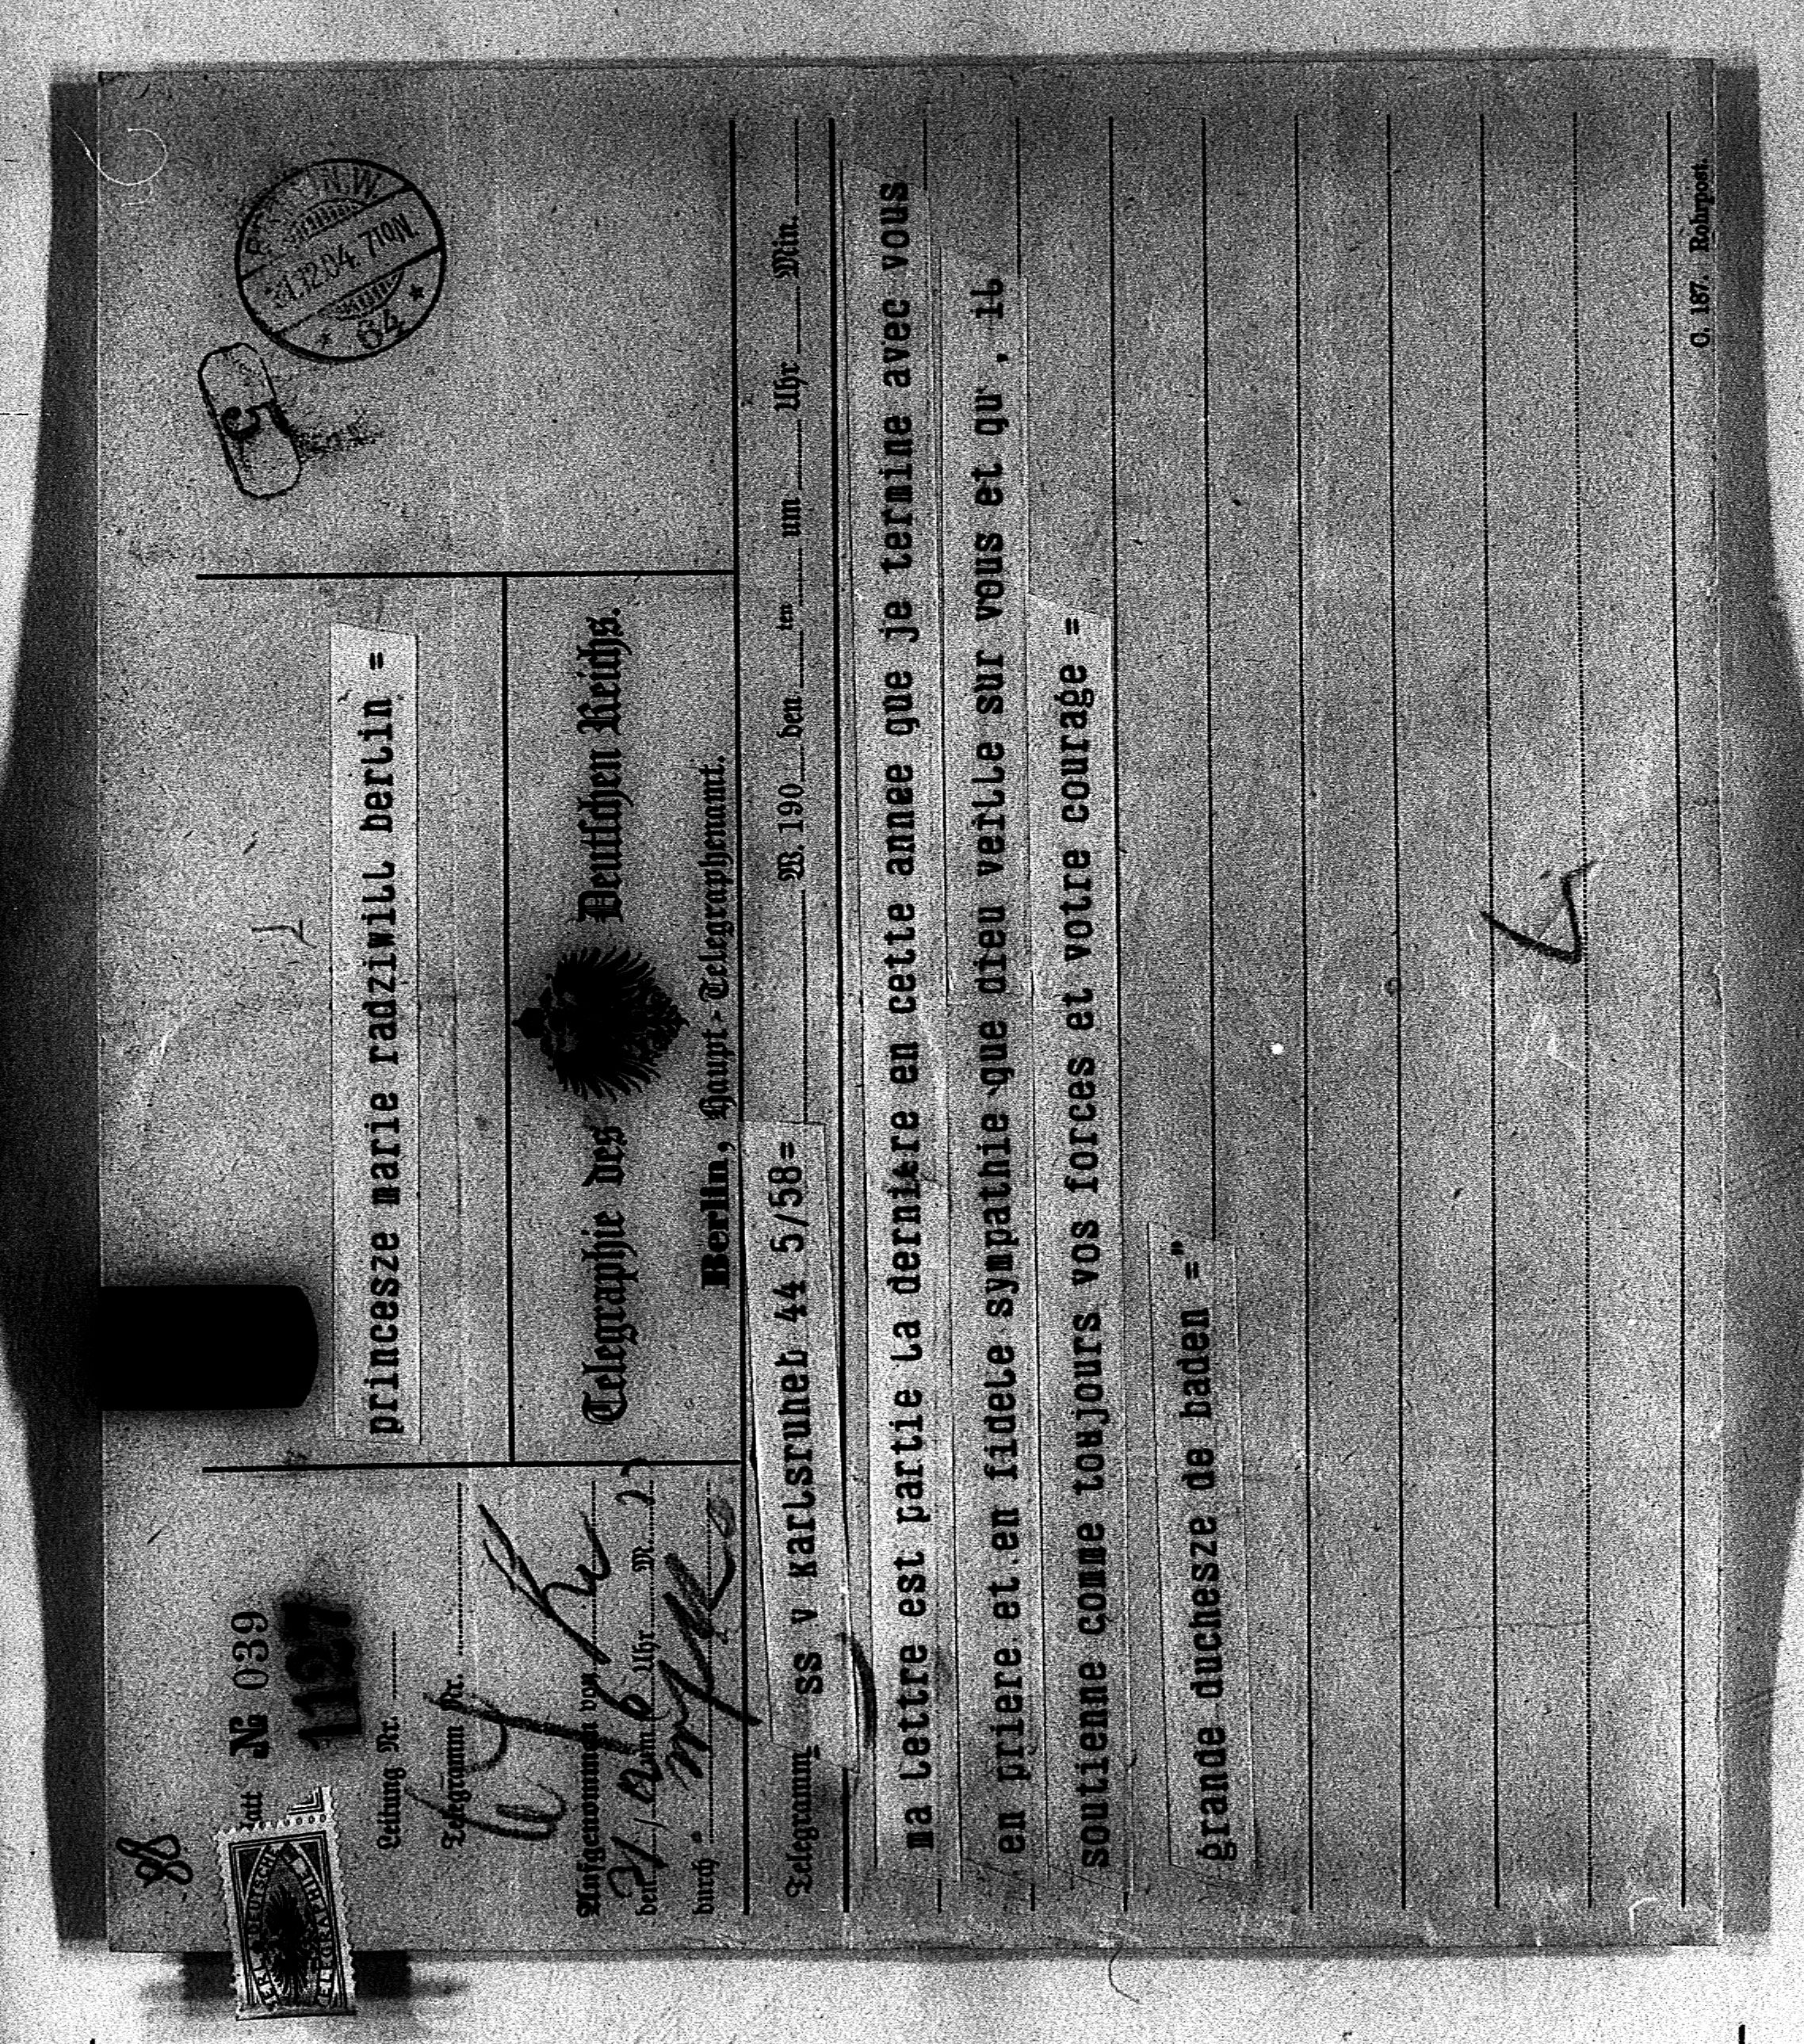 88
Blatt № 039
1127
Leitung Nr.
Telegramm Nr.
Aufgenommen von
den 31/12 um 6 Uhr M.
durch
KAIS. DEUTSCHE TELEGRAPHIE
princesze marie radziwill berlin =
Telegraphie des Deutschen Reichs.
Berlin, Haupt-Telegraphenamt.
5
BERLIN N.W.
31.12.04. 7-10N.
* 64 *
Telegramm ss v karlsruheb 44 5/58= W. 190 den ten um Uhr Min.
ma lettre est partie la dernière en cette annee que je termine avec vous
en priere et.en fidele sympathie que dieu veille sur vous et qu' . il
soutienne comme toujours vos forces et votre courage =
grande duchesze de baden ="
C. 187. Rohrpost.